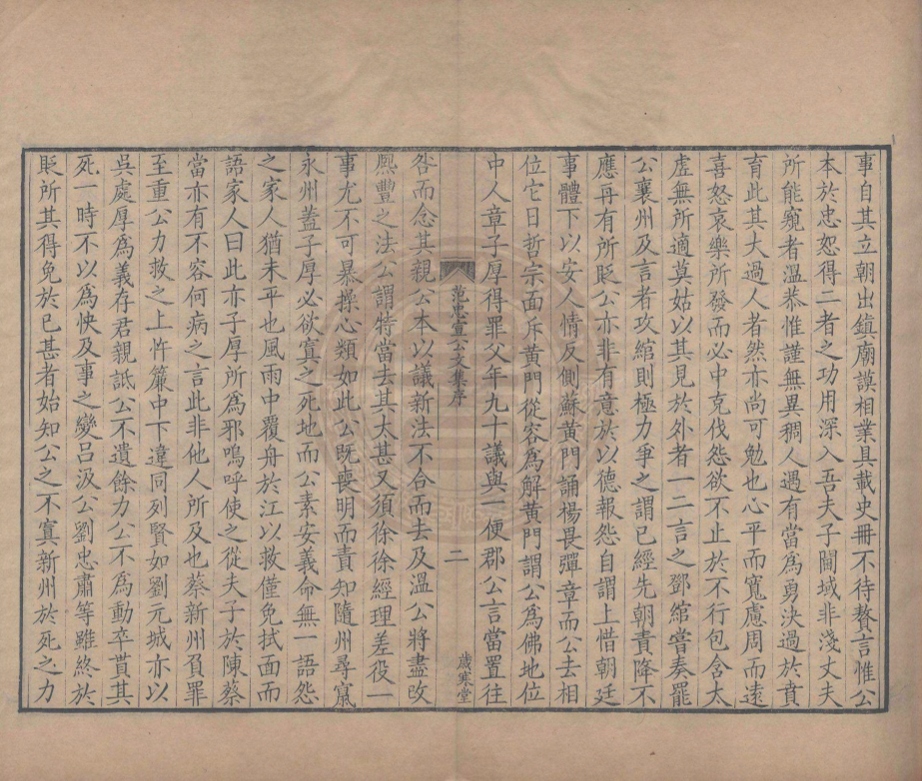 事自其立朝出鎮廟謨相業具載史冊不待贅言惟公
本於忠恕得二者之功用深入吾夫子閫域非淺丈夫
所能窺者溫恭惟謹無異稠人遇有當為勇決過於賁
育此其大過人者然亦尚可勉也心平而寬慮周而遠
喜怒哀樂所發而必中克伐怨欲不止於不行包含太
虛無所適莫姑以其見於外者一二言之鄧綰嘗奏罷
公襄州及言者攻綰則極力爭之謂已經先朝責降不
應再有所貶公亦非有意於以德報怨自謂上惜朝廷
事體下以安人情反側蘇黃門誦楊畏彈章而公去相
位它日哲宗面斥黃門從容為解黃門謂公為佛地位
中人章子厚得罪父年九十議與一便郡公言當置往
咎而念其親公本以議新法不合而去及溫公將盡改
熈豐之法公謂特當去其太甚又須徐徐經理差役一
事尤不可暴操心類如此公既喪明而責知隨州尋竄
永州蓋子厚必欲寘之死地而公素安義命無一語怨
之家人猶未平也風雨中覆舟於江以救僅免拭面而
語家人曰此亦子厚所為邪嗚呼使之從夫子於陳蔡
當亦有不容何病之言此非他人所及也蔡新州負罪
至重公力救之上忤簾中下違同列賢如劉元城亦以
吳處厚為義存君親詆公不遺餘力公不為動卒貰其
死一時不以為快及事之變呂汲公劉忠肅等雖終於
貶所其得免於已甚者始知公之不寘新州於死之力
范忠宣公文集序
二
歲寒堂